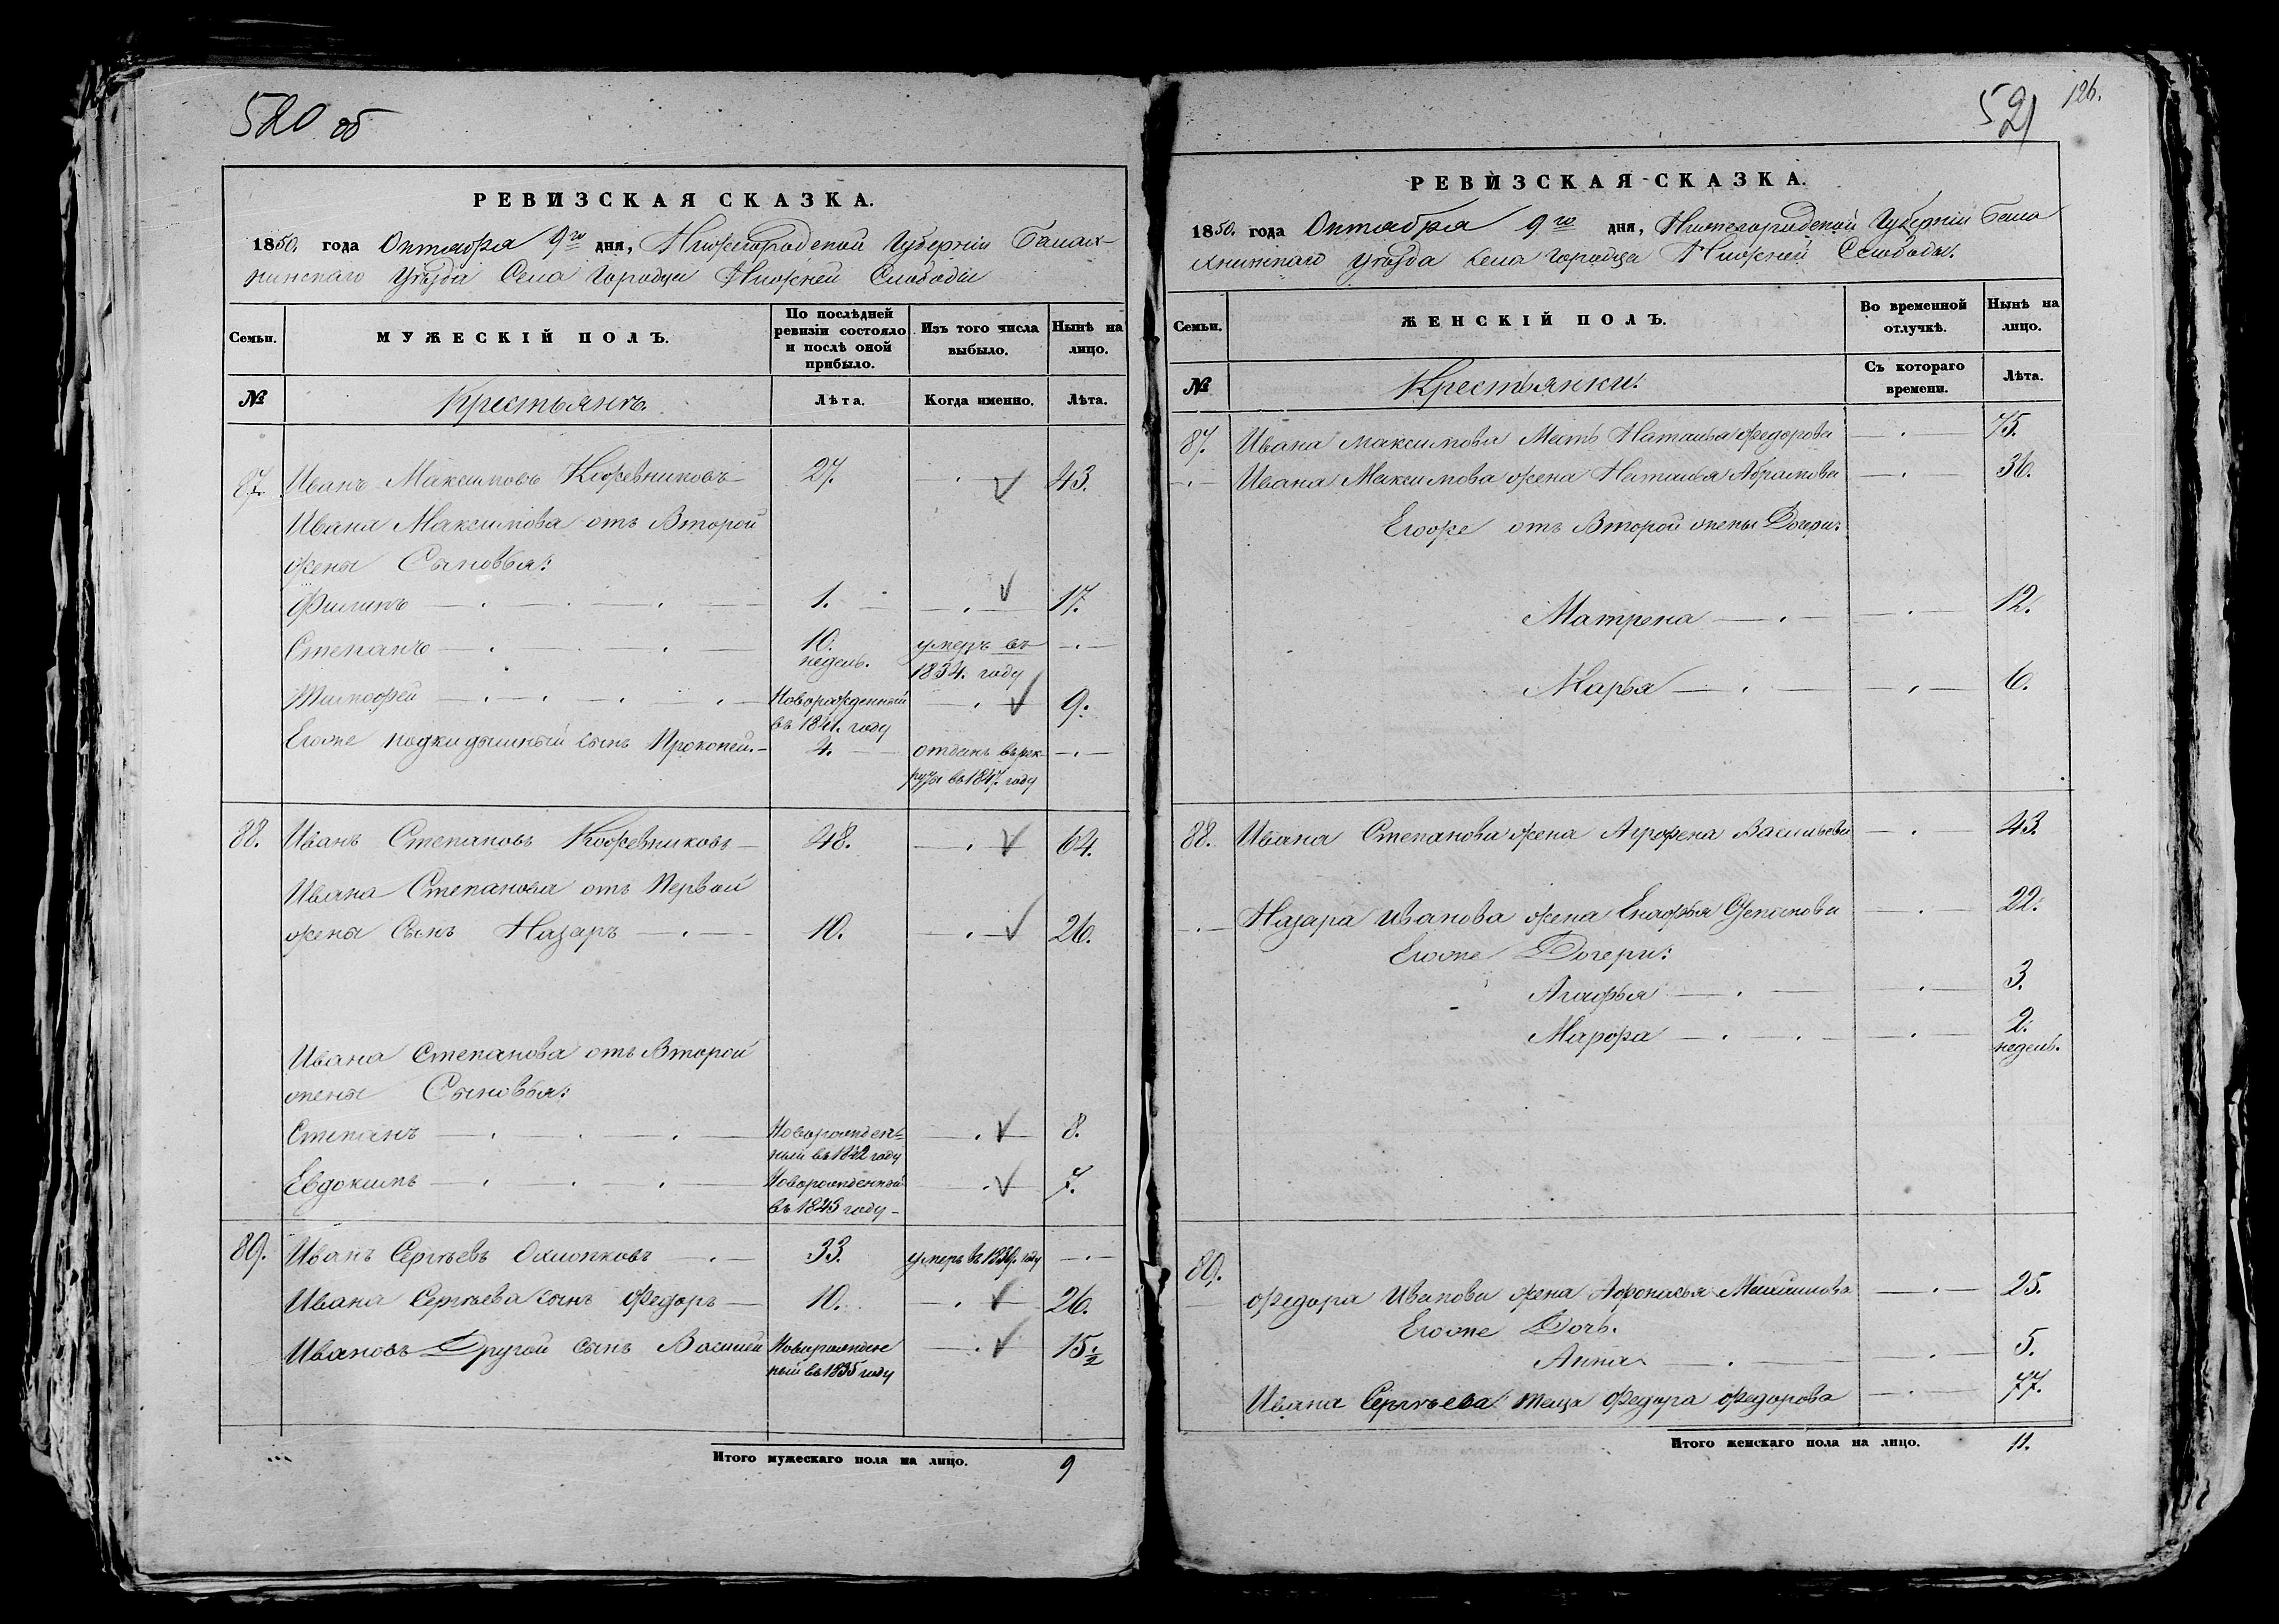 520 об
РЕВИЗСКАЯ СКАЗКА.
1850. года Октября 9го дня, Нижегородской Губернии Балах-
нинскаго Уѣзда Села Городца Нижней Слободы
Семьи.
МУЖЕСКІЙ ПОЛЪ.
По послѣдней ревизіи состояло и послѣ оной прибыло.
Изъ того числа выбыло.
Нынѣ на лицо.
№
Крестьянъ.
Лѣта.
Когда именно.
Лѣта.
87. Иванъ Максимовъ Кожевниковъ 27. 43.
Ивана Максимова отъ Второй
жены Сыновья:
Филипъ 1. 17.
Степанъ 10. недель. умеръ въ 1834. году
Тимофей Новорожденный въ 1841. году 9.
Егоже подкидышный сынъ Прокопей. 4. отданъ въ рек-
руты въ 1847. году
88. Иванъ Степановъ Кожевниковъ 48. 64.
Ивана Степанова отъ Первой
жены Сынъ Назаръ 10. 26.
Ивана Степанова отъ Второй
жены Сыновья:
Степанъ Новорожден-
ный въ 1842 году 8.
Евдокимъ Новорожденный
въ 1843 году 7.
89. Иванъ Сергѣевъ Охлопковъ 33. умеръ въ 1839. году
Ивана Сергѣева сынъ Федоръ 10. 26.
Ивановъ Другой сынъ Василей Новорожден
ный въ 1835 году 15 1/2
Итого мужескаго пола на лицо. 9
521 126.
РЕВИЗСКАЯ СКАЗКА.
1850. года Октября 9го дня, Нижегородской Губернии Бала
хнинскаго Уѣзда села Городца Нижней Слободы.
Семьи.
ЖЕНСКІЙ ПОЛЪ.
Во временной отлучкѣ.
Нынѣ на лицо.
№
Крестьянки:
Съ котораго времени.
Лѣта.
87. Ивана Максимова Мать Наталья Федорова 75.
Ивана Максимова жена Наталья Абрамова 36.
Егоже отъ Второй жены Дочери:
Матрена 12.
Марья 6.
88. Ивана Степанова жена Агрофена Васильева 43
Назара Иванова жена Енафья Степанова 22.
Егоже Дочери:
Агафья 3.
Марфа 2. недель.
89.
Федора Иванова жена Афонасья Михаилова 25.
Егоже Дочь.
Анна 5.
Ивана Сергѣева теща Федора Федорова 77.
Итого женскаго пола на лицо. 11.